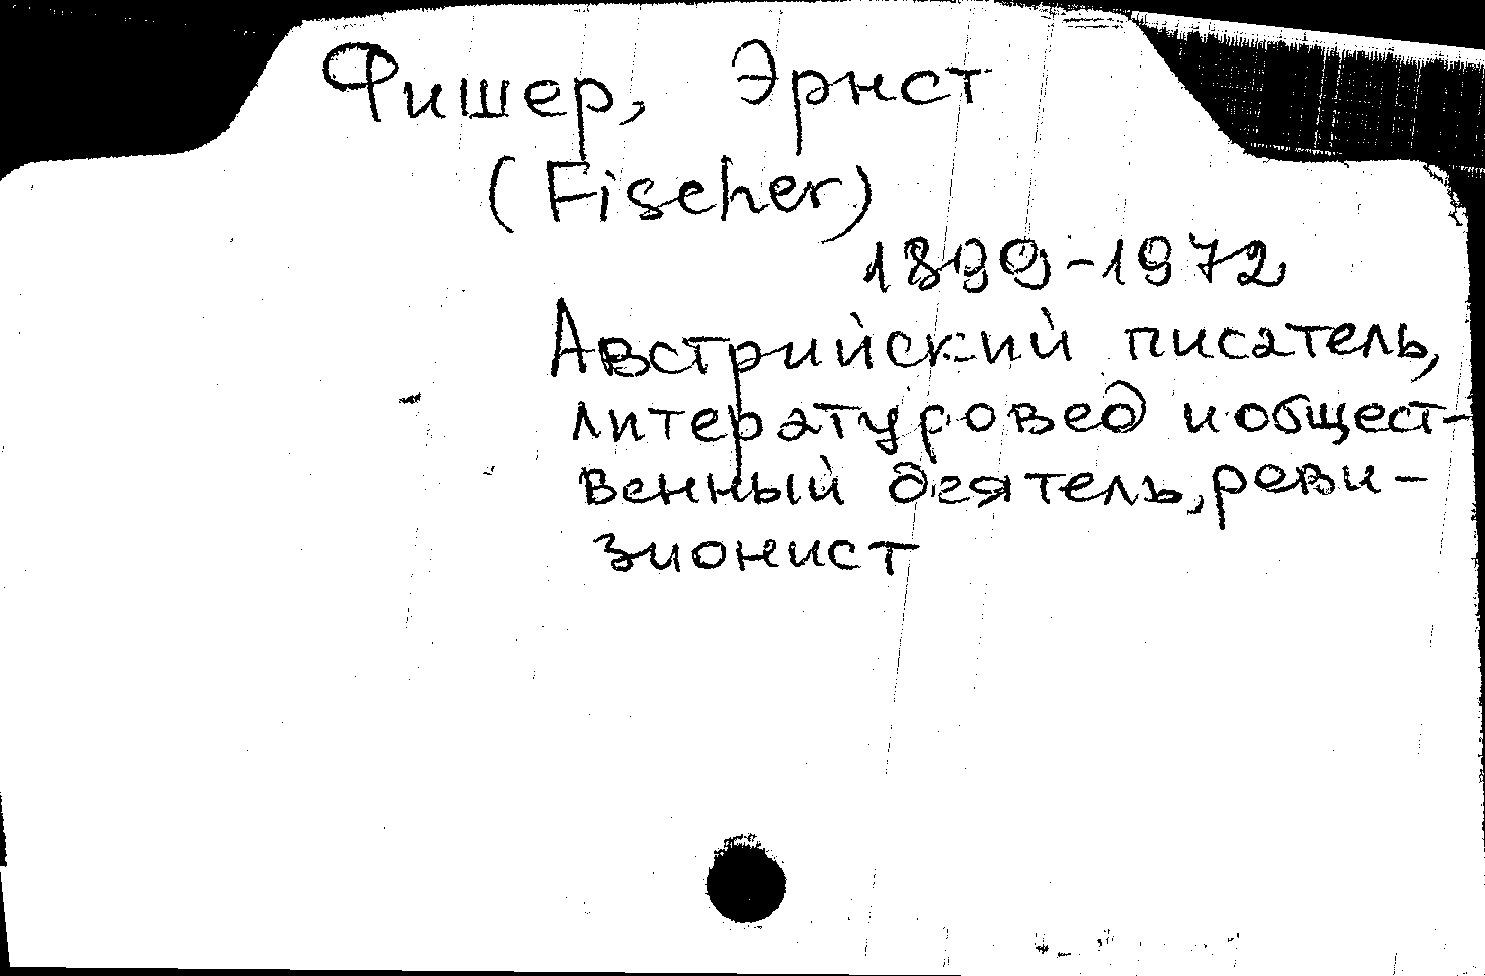 Фишер, Эрнст
(Fischer)
1899-1972
Австрийский писатель,
литературовед и общест-
венный деятель, реви-
зионист